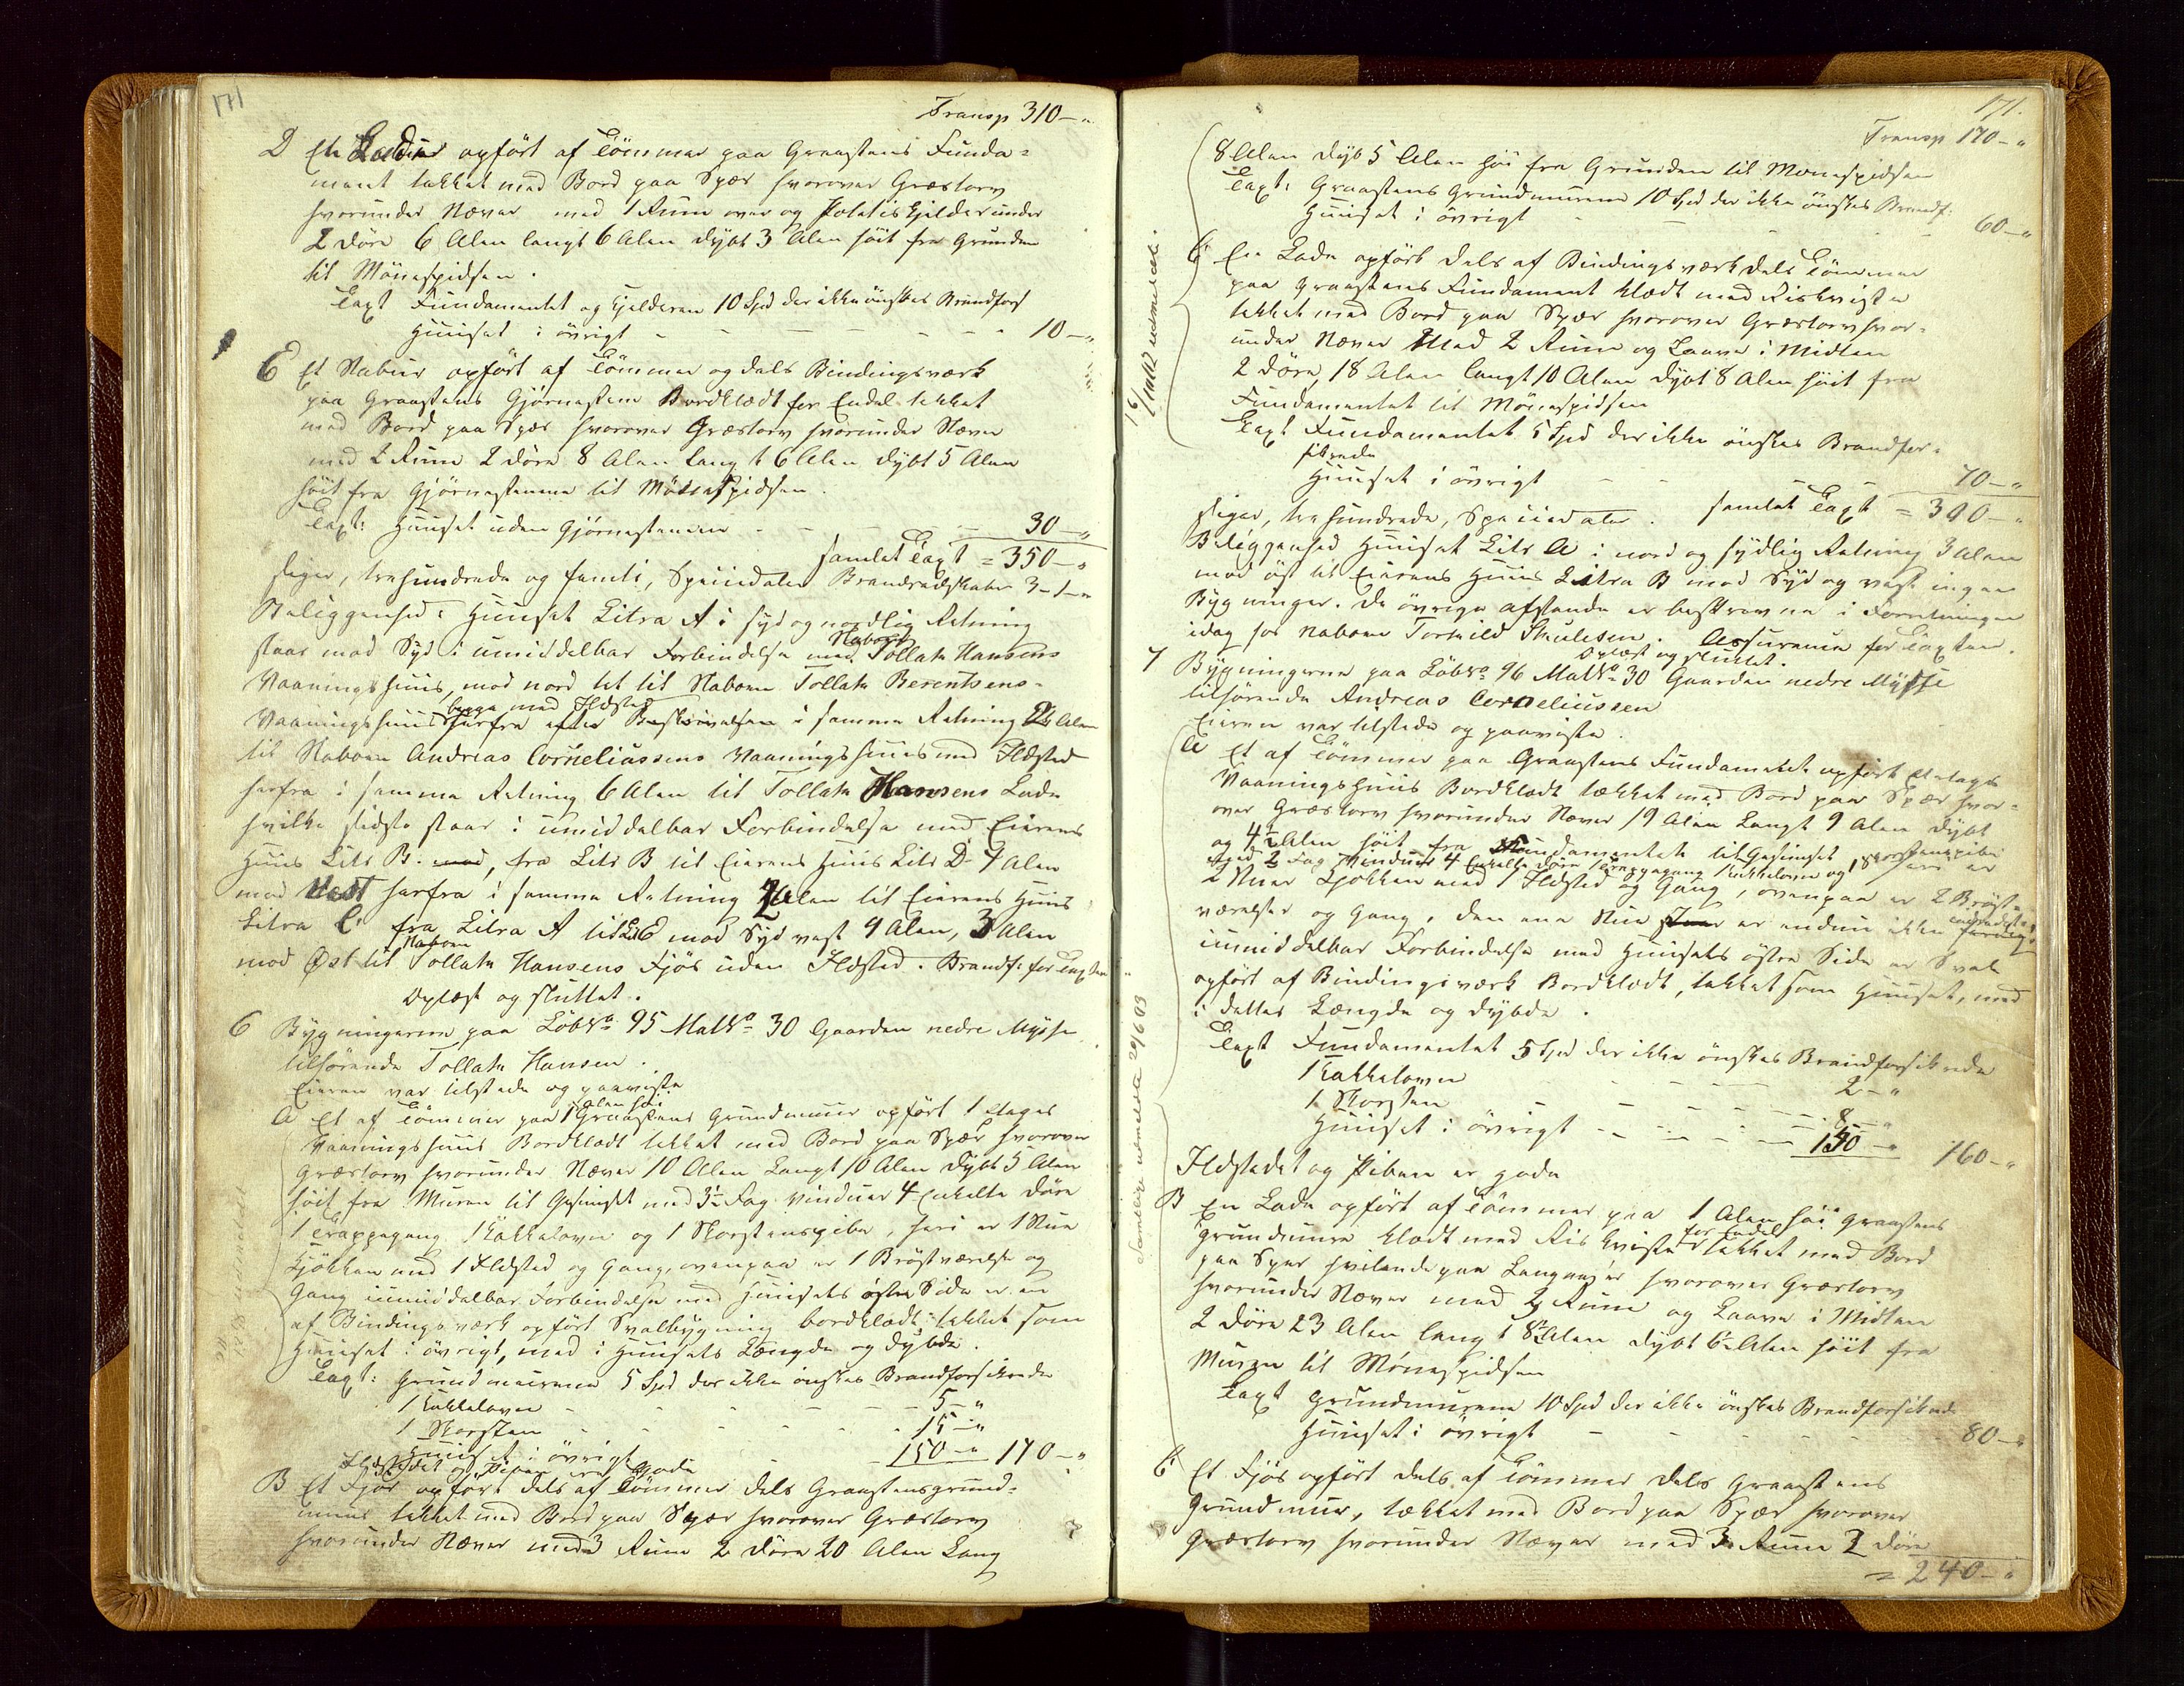 171
Transp 310-"
D Et opført af Tømmer paa Graastens Funda=
ment tækket med Bord paa Spær hvorover Græstorv
hvorunder Næver med 1 Rum over og Potetiskjelder under
2 Døre 6 Alen langt 6 Alen dybt 3 Alen høit fra Grunden
til Mønespidsen.
Taxt Fundamentet og Kjelderen 10 Spd der ikke ønskes Brandfors
Huuset i øvrigt - 10-"
E Et Stabuur opført af Tømmer og dels Bindingsværk
paa Graastens Hjørnestene Bordklædt for Endel tækket
med Bord paa Spær hvorover Græstorv hvorunder Næver
med 2 Rum 2 Døre 8 Alen langt 6 Alen dybt 5 Alen
høit fra Hjørnestenene til Mønespidsen.
Taxt: Huuset uden Hjørnestenene - 30-"
samlet Taxt = 350-"
siger, trehundrede og femti, Speciedaler Brandredskaber 3-1-"
Beliggenhed: Huuset Litra A i syd og nordlig Retning
staar mod Syd i umiddelbar Forbindelse med Naboen Tollak Hansens
Vaaningshuus, mod nord tet til Naboen Tollak Berentsens
Vaaningshuus begge med Ildsted herfra efter Beskrivelsen i samme Retning Alen
til Naboen Andreas Corneliussens Vaaningshuus med Ildsted
herfra i samme Retning 6 Alen til Tollak Hansens Lade
hvilke sidste staar i umiddelbar Forbindelse med Eierens
Huus Litr B. mod, fra Litr B til Eierens Huus Litr D 4 Alen
mod Vest herfra i samme Retning 2 Alen til Eierens Huus
Litra C fra Litra A til Lit E mod Syd vest 9 Alen, 3 Alen
mod Øst til Naboen Tollak Hansens Fjøs uden Ildsted. Brandf: for Taxten
Oplæst og sluttet.
6 Bygningerne paa LøbNo 95 MatNo 30 Gaarden nedre Mysse
tilhørende Tollak Hansen.
Eieren var tilstede og paaviste
A Et af Tømmer paa 1 Alen høi Graastens Grundmuur opført 1 Etages
Vaaningshuus Bordklædt tækket med Bord paa Spær hvorover
Græstorv hvorunder Næver 10 Alen Langt 10 Alen dybt 5 Alen
høit fra Muren til Gesimset med 3½ Fag Vinduer 4 Enkelte Døre
1 Trappegang 1 Kakkelovn og 1 Skorstenspibe, heri er 1 Stue
Kjøkken med 1 Ildsted og Gang, ovenpaa er 1 Brøstværelse og
Gang umiddelbar Forbindelse med Huusets østre Side er en
af Bindingsværk opført Svalbygning bordklædt tækket som
Huuset i øvrigt, med i Huusets Længde og dybde.
Taxt: Grundmurene 5 Spd der ikke ønskes Brandforsikrede
1 Kakkelovn - 5-"
1 Skorsten - 15-"
Huuset i øvrigt - 150-" 170-"
Ildstedet og Piben ere gode
B Et Fjøs opført dels af Tømmer dels Graastensgrund=
muur tækket med Bord paa Spær hvorover Græstorv
hvorunder Næver med 3 Rum 2 Døre 20 Alen Lang
171.
Transp 170-"
8 Alen dybt 5 Alen høi fra Grunden til Mønespidsen
Taxt: Graastens Grundmurene 10 Spd der ikke ønskes Brandf:
Huuset i øvrigt - 60-"
C En Lade opført dels af Bindingsværk dels Tømmer
paa Graastens Fundament klædt med Riskviste
tækket med Bord paa Spær hvorover Græstorv hvor=
under Næver Med 2 Rum og Laave i Midten
2 Døre, 18 Alen langt 10 Alen dybt 8 Alen høit fra
Fundamentet til Mønespidsen
Taxt Fundamentet 5 Spd der ikke ønskes Brandfor=
sikrede
Huuset i øvrigt - 70-"
samlet Taxt = 300-"
siger, trehundrede, Speciedaler.
Beliggenhed Huuset Litr A i nord og sydlig Retning 3 Alen
mod øst til Eierens Huus Litra B mod Syd og vest ingen
Bygninger. De øvrige afstande er beskrevne i Forretningen
idag hos Naboen Tormild Skulesen. Assurance for Taxten.
Oplæst og sluttet.
7 Bygningerne paa LøbNo 96 MatNo 30 Gaarden nedre Mysse
tilhørende Andreas Corneliussen
Eieren var tilstede og paaviste.
A Et af Tømmer paa Graastens Fundament opført Etages
Vaaningshuus Bordklædt tækket med Bord paa Spær hvor=
over Græstorv hvorunder Næver 19 Alen Langt 9 Alen dybt
og 4½ Alen høit fra Fundamentet til Gesimset
med Fag Vinduer 4 Enkelte Døre 1 Trappegang 1 Kakkelovn og 1 Skorstenspibe heri er
2 Stuer Kjøkken med 1 Ildsted og Gang, ovenpaa er 2 Brøst=
værelser og Gang, den ene Stue er endnu ikke indredet
umiddelbar Forbindelse med Huusets østre Side er Sval
opført af Bindingsværk Bordklædt, tækket som Huuset, med
i dettes Længde og dybde.
Taxt Fundamentet 5 Spd der ikke ønskes Brandforsikrede
1 Kakkelovn - 2-"
1 Skorsten - 8-"
Huuset i øvrigt - 150-" 160-"
Ildstedet og Piben er gode
B En Lade opført af Tømmer paa 1 Alen høi Graastens
Grundmure klædt med Riskviste for Endel tækket med Bord
paa Spær hvilende paa Langaaser hvorover Græstorv
hvorunder Næver med 2 Rum og Laave i Midten
2 Døre 23 Alen langt 8½ Alen dybt 6½ Alen høit fra
Muren til Mønespidsen
Taxt Grundmurene 10 Spd der ikke ønskes Brandforsikrede
Huuset i øvrigt - 80-"
C Et Fjøs opført dels af Tømmer dels Graastens
Grundmur, tækket med Bord paa Spær hvorover
Græstorv hvorunder Næver med 3 Rum 2 Døre
= 240-"